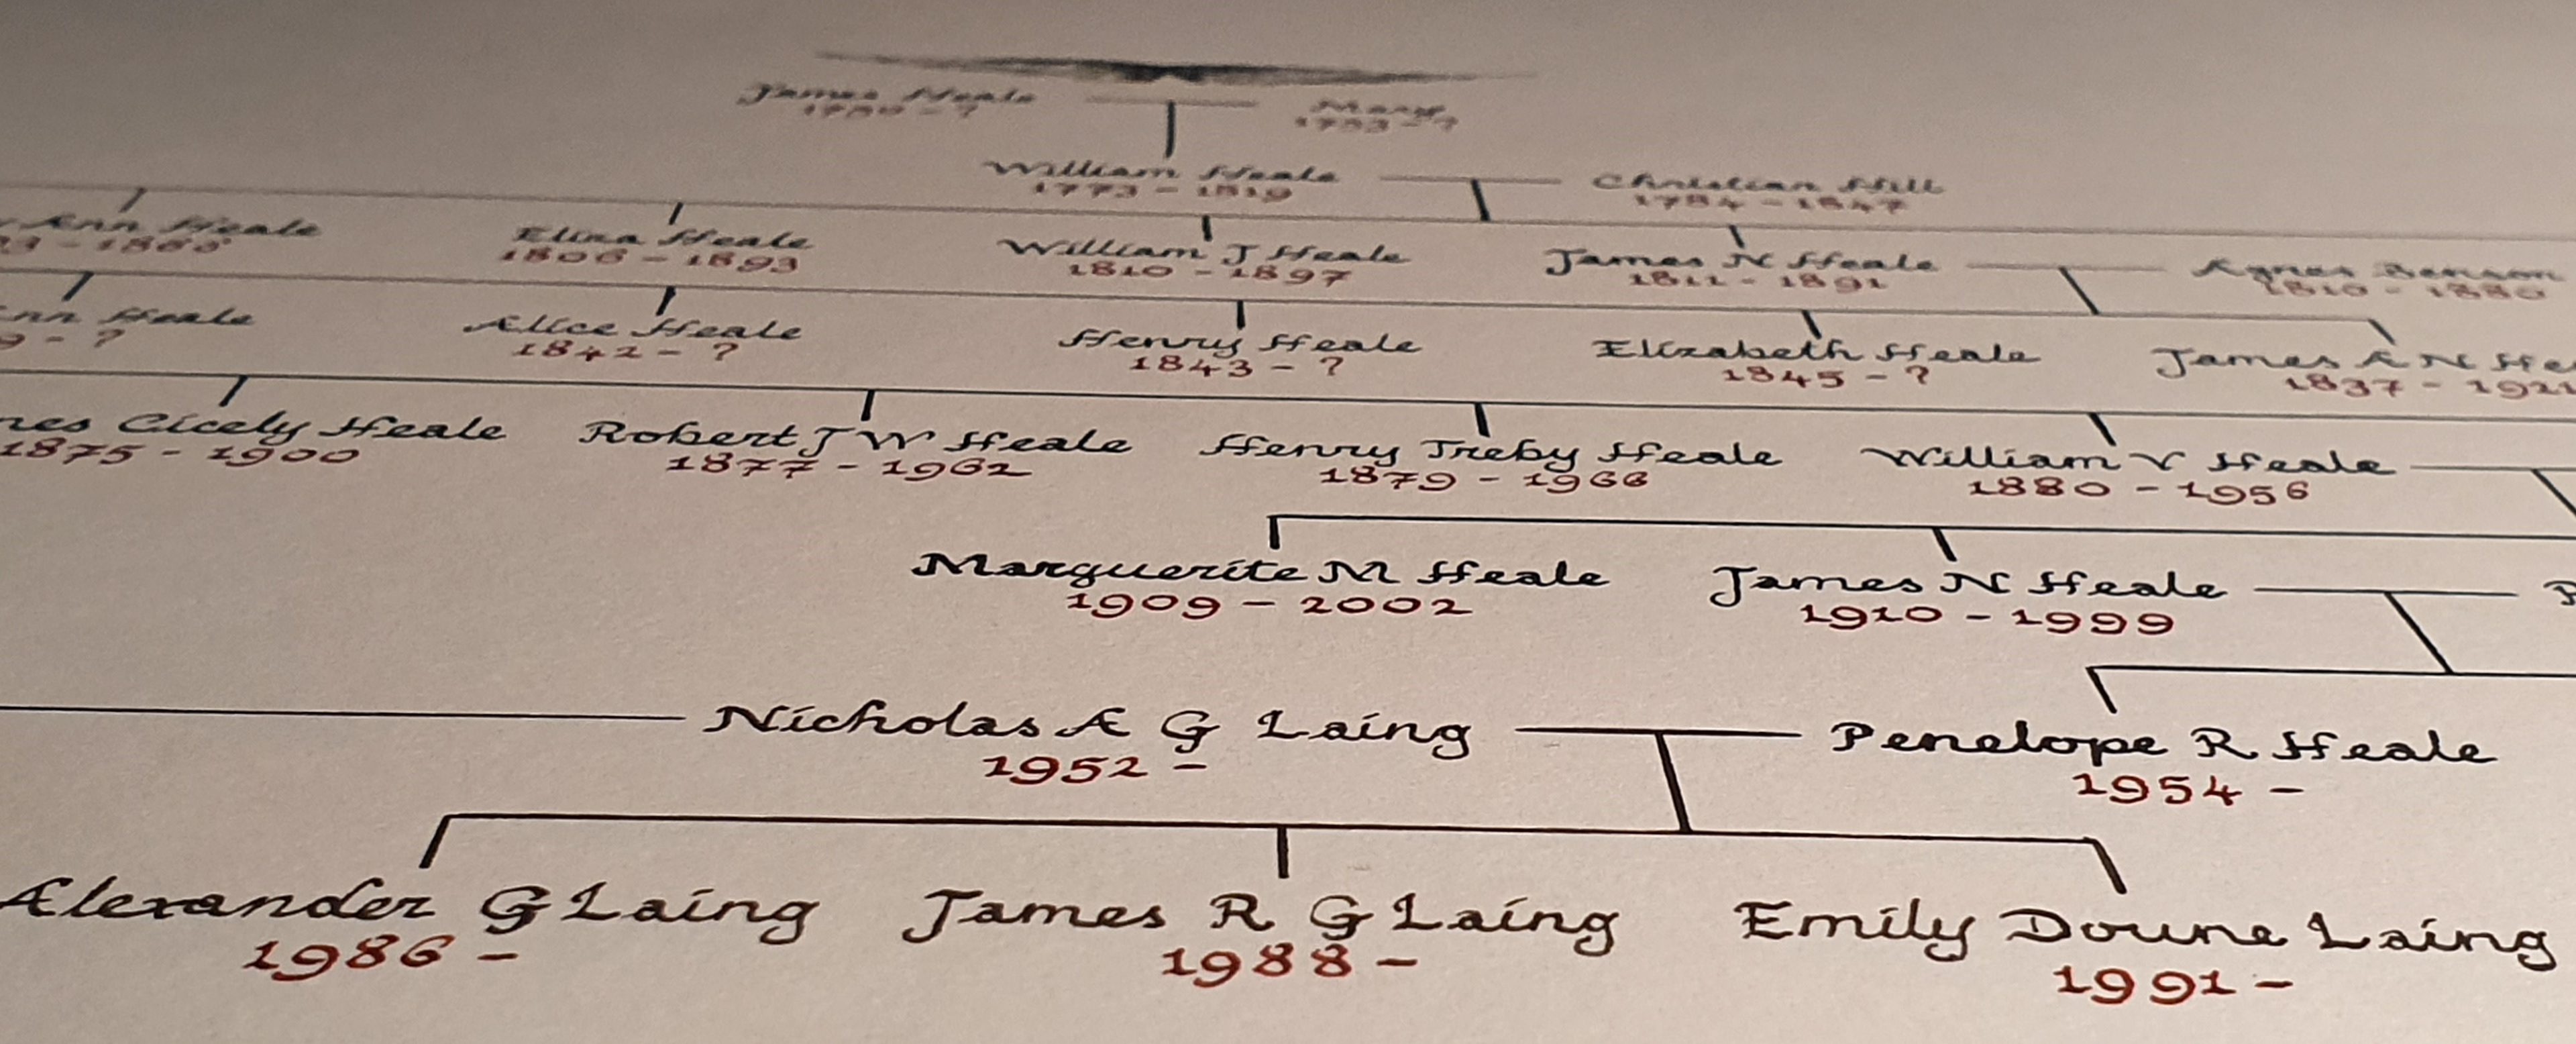 James Heale
Mary
William Heale
1773 - 1819
Christian Hill
1784 - 1847
Ann Heale
- 1865
Eliza Heale
1806 - 1893
William J Heale
1810 - 1897
James N Heale
1811 - 1891
Agnes Benson
1810 - 1880
Heale
9 - ?
Alice Heale
1842 - ?
Henry Heale
1843 - ?
Elizabeth Heale
1845 - ?
James A N Hea
1837 - 1921
nes Cicely Heale
1875 - 1900
Robert J W Heale
1877 - 1962
Henry Treby Heale
1879 - 1966
William V Heale
1880 - 1956
Marguerite M Heale
1909 - 2002
James N Heale
1910 - 1999
Nicholas A G Laing
1952 -
Penelope R Heale
1954 -
Alexander G Laing
1986 -
James R G Laing
1988 -
Emily Doune Laing
1991 -